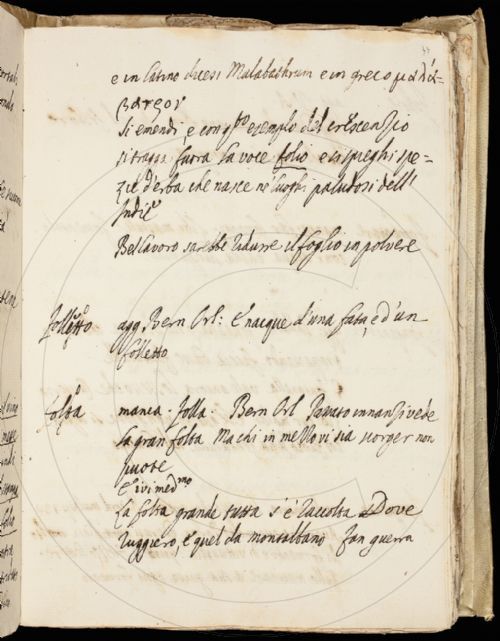 e in latino dicesi Malabathrum e in greco μαλά-
βαθρον
Si emendi, e con q.to esempio del Crescenzio
si tragga fuora la voce folio e si spieghi spe-
zie d'erba che nasce ne luoghi paludosi dell'
Indie
Bel lavoro sarebbe ridurre il foglio in polvere
Folletto agg. Bern Orl: E nacque d'una fata, e d'un
folletto
folta manca. folla. Bern Orl Davato innanzi vede
la gran folta Ma chi in mezzo vi sia scorger non
puote
E ivi med.mo
La folta grande tutta s'è raccolta Dove
Ruggiero, e quel da montalbano fan guerra